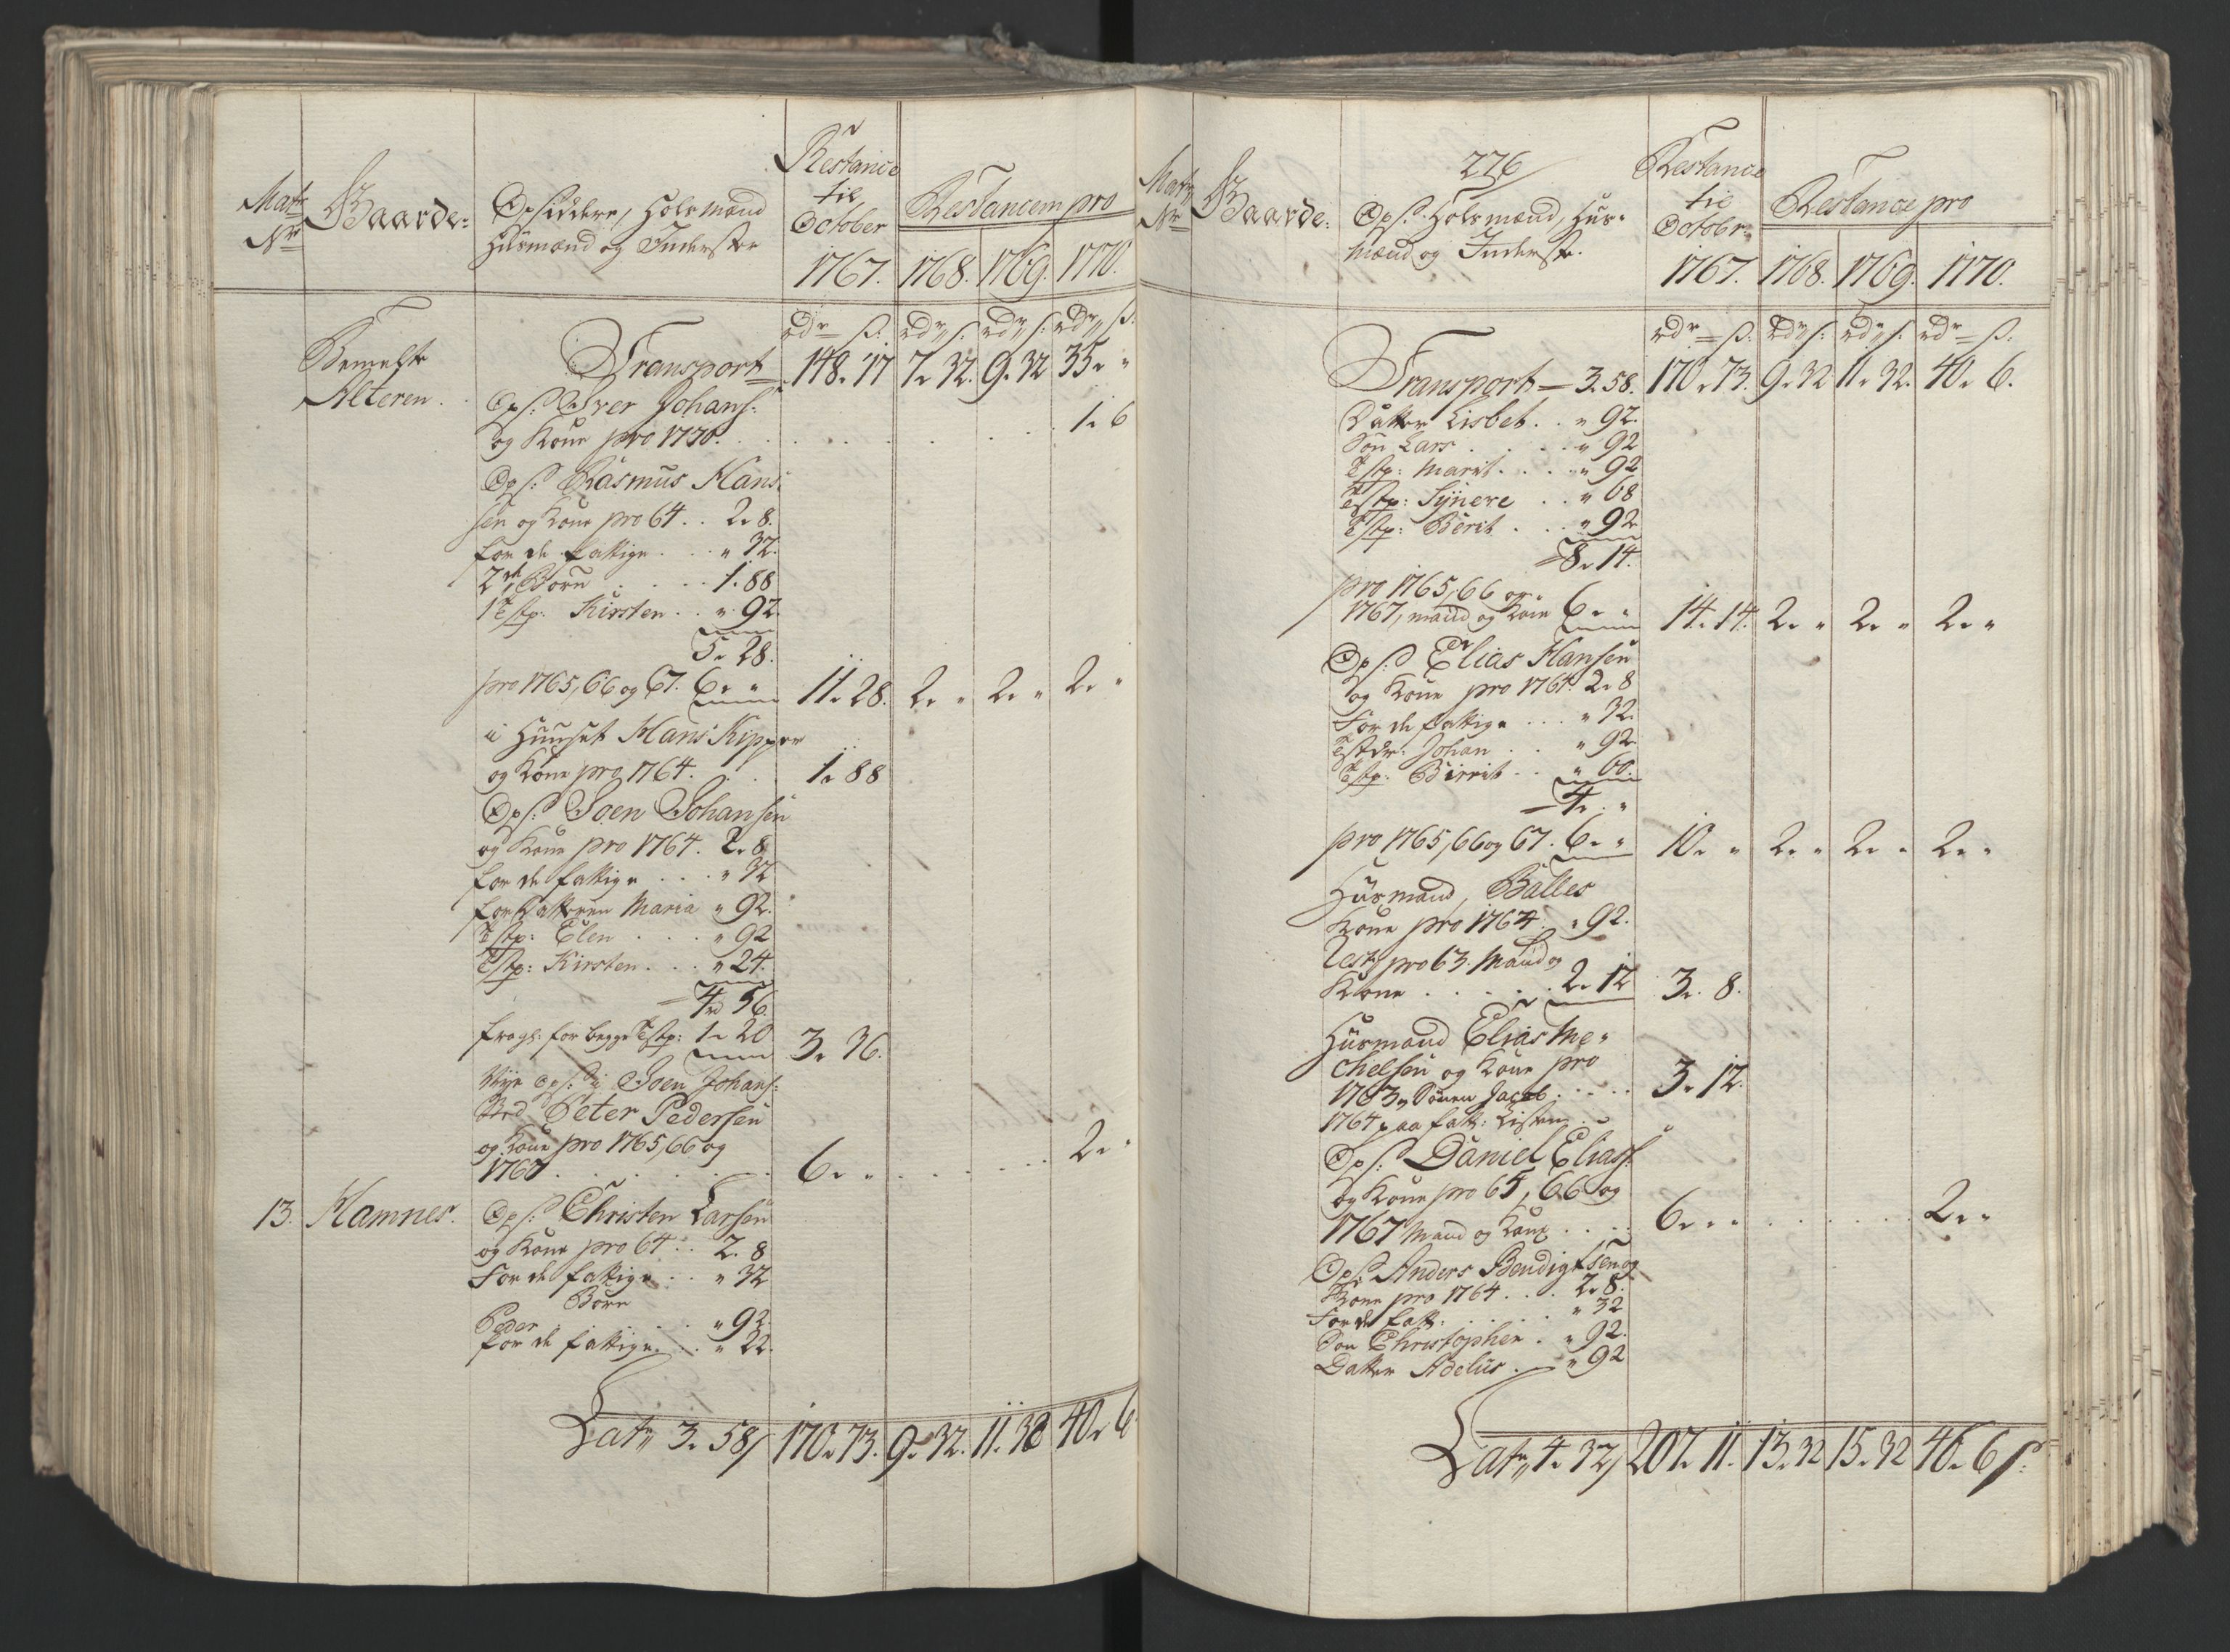 Restance
Matr Gaarde: Opsiddere, Holsmænd til Restancen pro
Nr Huusmænd og Inderster October
1767. 1768. 1769. 1770.
rdr ß: rdr ß: rdr ß: rdr ß:
Bemelte Transport 148. 17 7. 32. 9. 32 35. "
Alteren. Ops: Iver Johans:
og Kone pro 1770. 1. 6
Ops: Rasmus Hans-
sen og Kone pro 64. . 2. 8.
for de fattige . . . " 32.
2de Børn . . . . 1. 88
1 Tstp: Kirsten . . " 92
5. 28.
pro 1765, 66 og 67. 6. " 11. 28. 2. " 2. " 2. "
i Huuset Hans Kipper
og Kone pro 1764. 1. 88
Ops: Joen Johansen
og Kone pro 1764. 2. 8
for de fattige . . . " 32
for Datteren Maria " 92.
Tstp: Elen . . . " 92
Tstp: Kirsten . . . " 24.
4. 56.
fragl: for begge Tstp: 1. 20 3. 36.
Nye ops: i Joen Johans:
Sted Peter Pedersen
og Kone pro 1765, 66 og
1767 . . . 6. " 2. "
13. Hamnes. Ops: Christen Larsen
og Kone pro 64 . . 2. 8
For de fattige . . " 32
Børn
Peder . . . " 92.
for de fattige . . " 22.
Latr 3. 58/ 170. 73. 9. 32. 11. 32 40. 6
226
Restance
Matr Gaarde: Ops: Holsmænd, Huus- til Restance pro
Nr mænd og Inderst. October
1767. 1768. 1769. 1770.
rdr ß: rdr ß: rdr ß: rdr ß:
Transport 3. 58. 170. 73. 9. 32 11. 32. 40. 6.
Datter Lisbet . . " 92.
Søn Lars . . . " 92
Tstp: Marit . . . " 92
Tstp: Synere . . " 68
Tstp: Berit . . . " 92
8. 14.
pro 1765, 66 og
1767, mand og Kone 6. " 14. 14. 2. " 2. " 2. "
Ops: Elias Hansen
og Kone pro 1764. 2. 8
For de fattige . . . " 32.
Tstdr: Johan . . " 92
Tstp: Birrit . . " 60.
4. "
pro 1765, 66 og 67. 6. " 10. " 2. " 2. " 2. "
Huusmand, Balles
Kone pro 1764 " 92.
Rest pro 63. Mand og
Kone . . . . 2. 12 3. 8.
Huusmand Elias Me-
chelsen og Kone pro
1763, Sønen Jacob . . . . 3. 12.
1764 paa fatt: Listen
Ops: Daniel Eliass:
og Kone pro 65, 66 og
1767 Mand og Kone . . . . 6. " 2. "
Ops: Anders Bendigtsen og
Kone pro 1764 . . . 2. 8.
For de fatt: . . . . " 32
Søn Christopher . " 92.
Datter Adelus . " 92
Latr 4. 32/ 207. 11. 13. 32 15. 32 46. 6 ß: